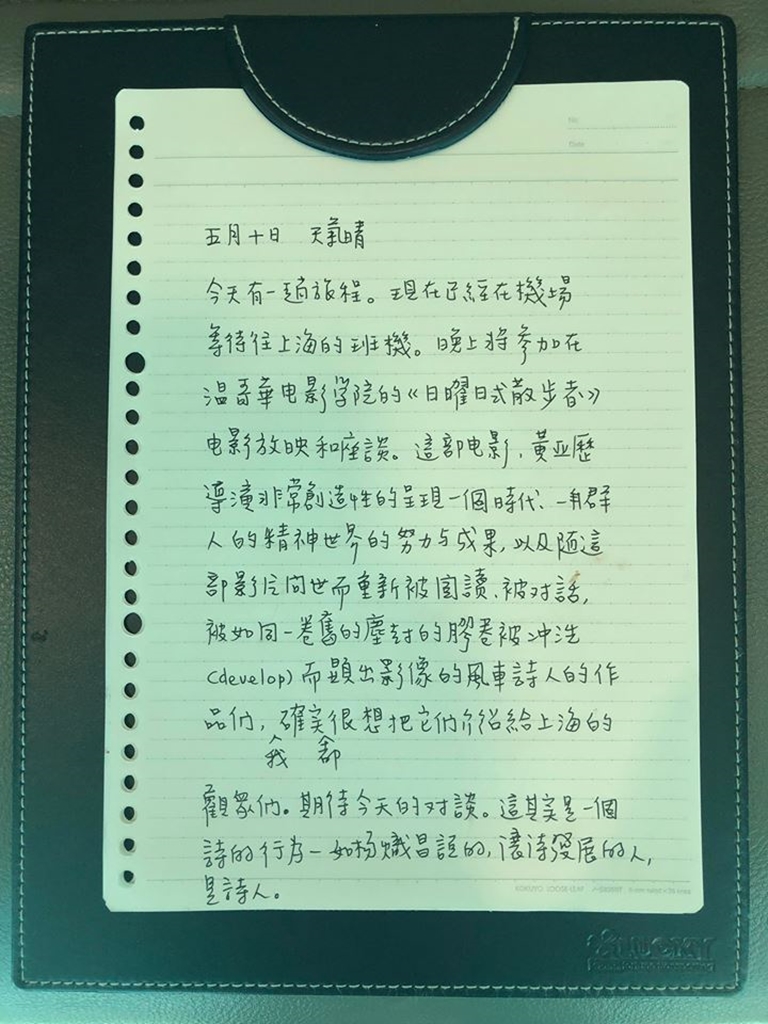 No.
Date
五月十日 天氣晴
今天有一趟旅程。現在已經在機場
等待往上海的班機。晚上將參加在
温哥華电影学院的《日曜日式散步者》
电影放映和座談。這部电影,黃亚歷
導演非常創造性的呈現一個時代、一群
人的精神世界的努力与成果,以及随這
部影片问世而重新被閱讀、被对話,
被如同一卷舊的塵封的膠卷被冲洗
(develop)而顯出影像的風車詩人的作
品们,確实很想把它们介绍給上海的
我 都
觀眾们。期待今天的对談。這其实是一個
詩的行为—如杨熾昌說的,讓詩發展的人,
是詩人。